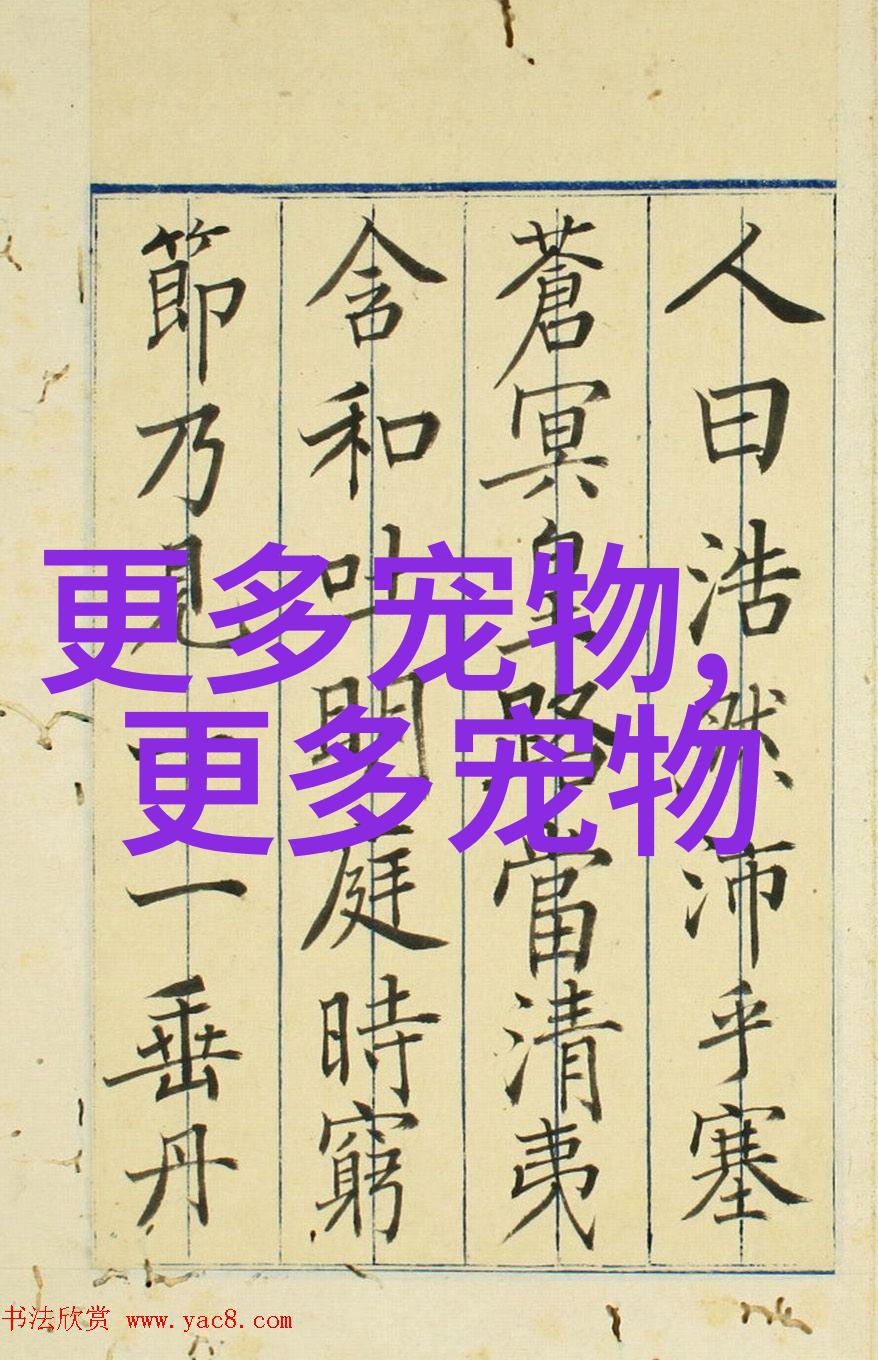 人曰浩然沛乎塞
蒼冥皇路當清夷
含和吐明庭時窮
節乃見一一垂丹
更多宠物,
更多宠物
书法欣赏 www.yac8.com